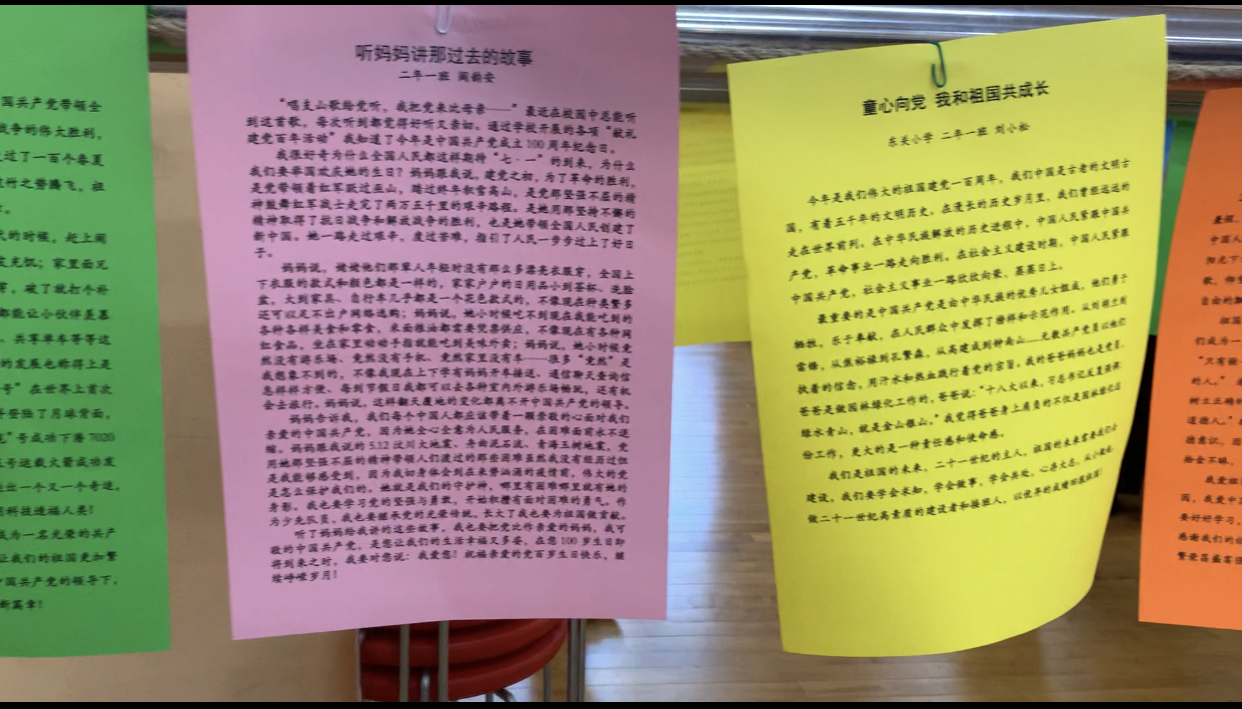 国共产党带领全
战争的伟大胜利,
过了一百个春夏
行之势腾飞,祖
代的时候,赶上闹
充饥;家里面兄
穿,破了就打个补
都能让小伙伴羡慕
、共享单车等等这
的发展也称得上是
号”在世界上首次
号”成功下潜 7020
五号运载火箭成功发
出一个又一个奇迹,
用科技造福人类!
成为一名光荣的共产
让我们的祖国更加繁
中国共产党的领导下,
新篇章!
听妈妈讲那过去的故事
二年一班
“唱支山歌给党听,我把党来比母亲——”最近在祖国中总能听
到这首歌,每次听到都觉得好听又亲切。通过学校开展的各项“献礼
建党百年活动”我知道了今年是中国共产党成立 100 周年纪念日。
我很好奇为什么全国人民都这样期待“七·一”的到来,为什么
我们要举国欢庆她的生日?妈妈跟我说,建党之初,为了革命的胜利,
是党带领着红军跃过巫山,踏过终年积雪高山,是党那坚强不屈的精
神鼓舞红军战士走完了两万五千里的艰辛路程。是她用那坚持不懈的
精神取得了抗日战争和解放战争的胜利,也是她带领全国人民创建了
新中国。她一路走过艰辛,度过苦难,指引了人民一步步过上了好日
子。
妈妈说,姥姥他们那辈人年轻时没有那么多漂亮衣服穿,全国上
下衣服的款式和颜色都是一样的,家家户户的日用品小到茶杯、洗脸
盆,大到家具、自行车几乎都是一个花色款式的,不像现在种类繁多
还可以足不出户网络选购;妈妈说,她小时候吃不到现在我能吃到的
各种各样美食和零食,米面粮油都需要凭票供应,不像现在有各种网
红食品,坐在家里动动手指就能吃到美味外卖;妈妈说,她小时候竟
然没有游乐场、竟然没有手机、竟然家里没有车——很多“竟然”是
我想象不到的,不像我现在上下学有妈妈开车接送、通信聊天查询信
息样样方便、每到节假日我都可以去各种室内外游乐场畅玩,还有机
会去旅行。妈妈说,这样翻天覆地的变化都离不开中国共产党的领导。
妈妈告诉我,我们每个中国人都应该带着一颗崇敬的心面对我们
亲爱的中国共产党,因为她全心全意为人民服务,在困难面前永不退
缩。妈妈跟我说的 5.12 汶川大地震、舟曲泥石流、青海玉树地震,党
用她那坚强不屈的精神带领人们渡过的那些困难虽然我没有经历过但
是我能够感受到,因为我切身体会到在来势汹汹的疫情前,伟大的党
是怎么保护我们的,她就是我们的守护神,哪里有困难哪里就有她的
身影。我也要学习党的坚强与勇敢,开始积攒有面对困难的勇气。作
为少先队员,我也要继承党的光荣传统,长大了我也要为祖国做贡献。
听了妈妈给我讲的这些故事,我也要把党比作亲爱的妈妈,我可
敬的中国共产党,是您让我们的生活幸福又多姿,在您 100 岁生日即
将到来之时,我要对您说:我爱您!祝福亲爱的党百岁生日快乐,继
续峥嵘岁月!
童心向党 我和祖国共成长
东关小学 二年一班 刘小松
今年是我们伟大的祖国建党一百周年,我们中国是古老的文明古
国,有着五千年的文明历史。在漫长的历史岁月里,我们曾经远远的
走在世界前列。在中华民族解放的历史进程中,中国人民紧跟中国共
产党,革命事业一路走向胜利。在社会主义建设时期,中国人民紧跟
中国共产党,社会主义事业一路欣欣向荣、蒸蒸日上。
最重要的是中国共产党是由中华民族的优秀儿女组成,他们勇于
牺牲,乐于奉献,在人民群众中发挥了榜样和示范作用。从刘胡兰到
雷锋,从焦裕禄到孔繁森,从高建成到钟南山……无数共产党员以他们
执着的信念,用汗水和热血践行着党的宗旨。我的爸爸妈妈也是党员,
爸爸是做园林绿化工作的,爸爸说:“十八大以来,习总书记反复强调:
绿水青山,就是金山银山。”我觉得爸爸身上肩负的不仅是园林绿化这
份工作,更大的是一种责任感和使命感。
我们是祖国的未来,二十一世纪的主人,祖国的未来需要我们去
建设,我们要学会求知,学会做事,学会共处,心存大志,从小做起,
做二十一世纪高素质的建设者和接班人,以优异的成绩回报祖国!
中国人
阳光下
歌,仰
自由的
祖国
们成为一
“又有做
的人。”
树立正确的
道德人。
德意识,
拾金不昧,
国,我爱中
要好好学习,
感谢我们的祖
繁荣昌盛富强